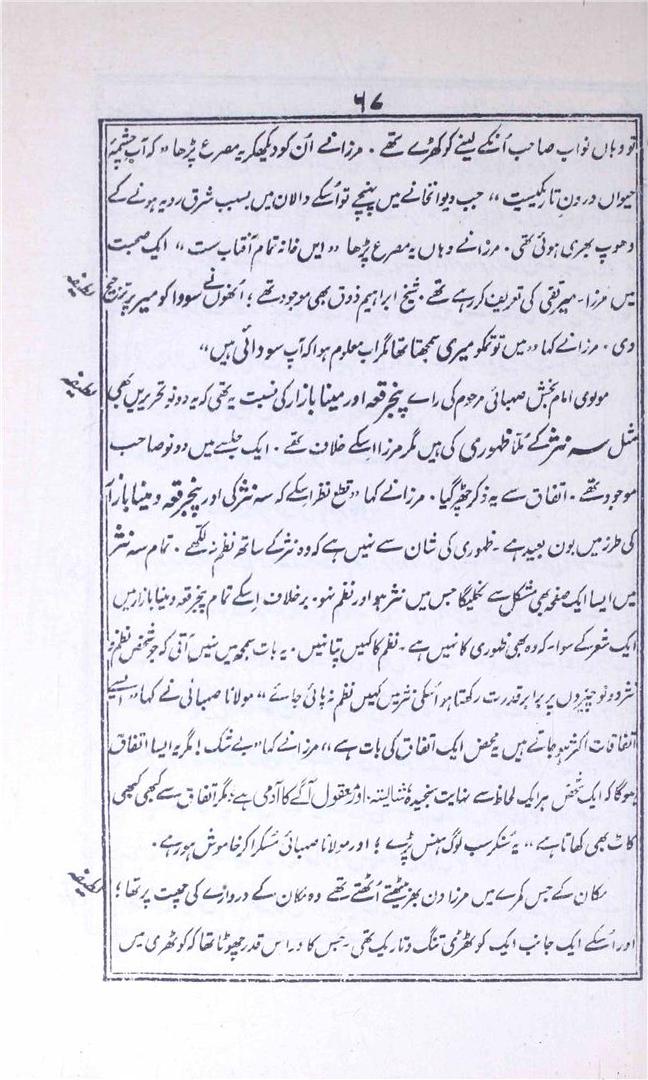 ۶۷
تو وہاں نواب صاحب اُنکے لینے کو کھڑے تھے ۔ مرزا نے اُن کو دیکھکر یہ مصرع پڑھا " کہ آبِ چشمۂ
حیواں درونِ تاریکیست ،، جب دیوانخانے میں پہنچے تو اُسکے دالان میں بسبب شرق رویہ ہونے کے
دھوپ بھری ہوئی تھی ۔ مرزا نے وہاں یہ مصرع پڑھا " ایں خانہ تمام آفتاب ست ،، ایک صحبت
میں مرزا ۔ میر تقی کی تعریف کر رہے تھے ۔ شیخ ابراہیم ذوق بھی موجود تھے ؛ اُنھوں نے سودا کو میر پر ترجیح
لطیفہ
دی ۔ مرزا نے کہا " میں تو تمکو میری سمجھتا تھا مگر اب معلوم ہوا کہ آپ سودائی ہیں "
مولوی امام بخش صہبائی مرحوم کی راے پنجرقعہ اور مینا بازار کی نسبت یہ تھی کہ یہ دونو تحریریں بھی
لطیفہ
مثل سہ نثر کے مُلّا ظہوری کی ہیں مگر مرزا اسکے خلاف تھے ۔ ایک جلسے میں دونو صاحب
موجود تھے ۔ اتفاق سے یہ ذکر چھڑ گیا ۔ مرزا نے کہا " قطع نظر اسکے کہ سہ نثر کی اور پنجرقعہ و مینا بازار
کی طرز میں بون بعید ہے ۔ ظہوری کی شان سے نہیں ہے کہ وہ نثر کے ساتھ نظم نہ لکھے ۔ تمام سہ نثر
میں ایسا ایک صفحہ بھی مشکل سے نکلیگا جس میں نثر ہو اور نظم نہو ۔ برخلاف اسکے تمام پنجرقعہ و مینا بازار میں
ایک شعر کے سوا ۔ کہ وہ بھی ظہوری کا نہیں ہے ۔ نظم کا کہیں پتا نہیں ۔ یہ بات سمجھ میں نہیں آتی کہ جو شخص نظم و
نثر دونو چیزوں پر برابر قدرت رکھتا ہو اُسکی نثر میں کہیں نظم نہ پائی جائے ،، مولانا صہبائی نے کہا " ایسے
اتفاقات اکثر ہو جاتے ہیں یہ محض ایک اتفاق کی بات ہے ،، مرزا نے کہا " بے شک ! مگر یہ ایسا اتفاق
ہوگا کہ ایک شخص ہر ایک لحاظ سے نہایت سنجیدہ شایستہ اور معقول آگے کا آدمی ہے ؛ مگر اتفاق سے کبھی کبھی
کاٹ بھی کھاتا ہے ،، یہ سُنکر سب لوگ ہنس پڑے ؛ اور مولانا صہبائی مُسکرا کر خاموش ہو رہے ۔
مکان کے جس کمرے میں مرزا دن بھر بیٹھتے اُٹھتے تھے وہ مکان کے دروازے کی چھت پر تھا ؛
لطیفہ
اور اُسکے ایک جانب ایک کوٹھری تنگ و تاریک تھی ۔ جس کا در اس قدر چھوٹا تھا کہ کوٹھری میں